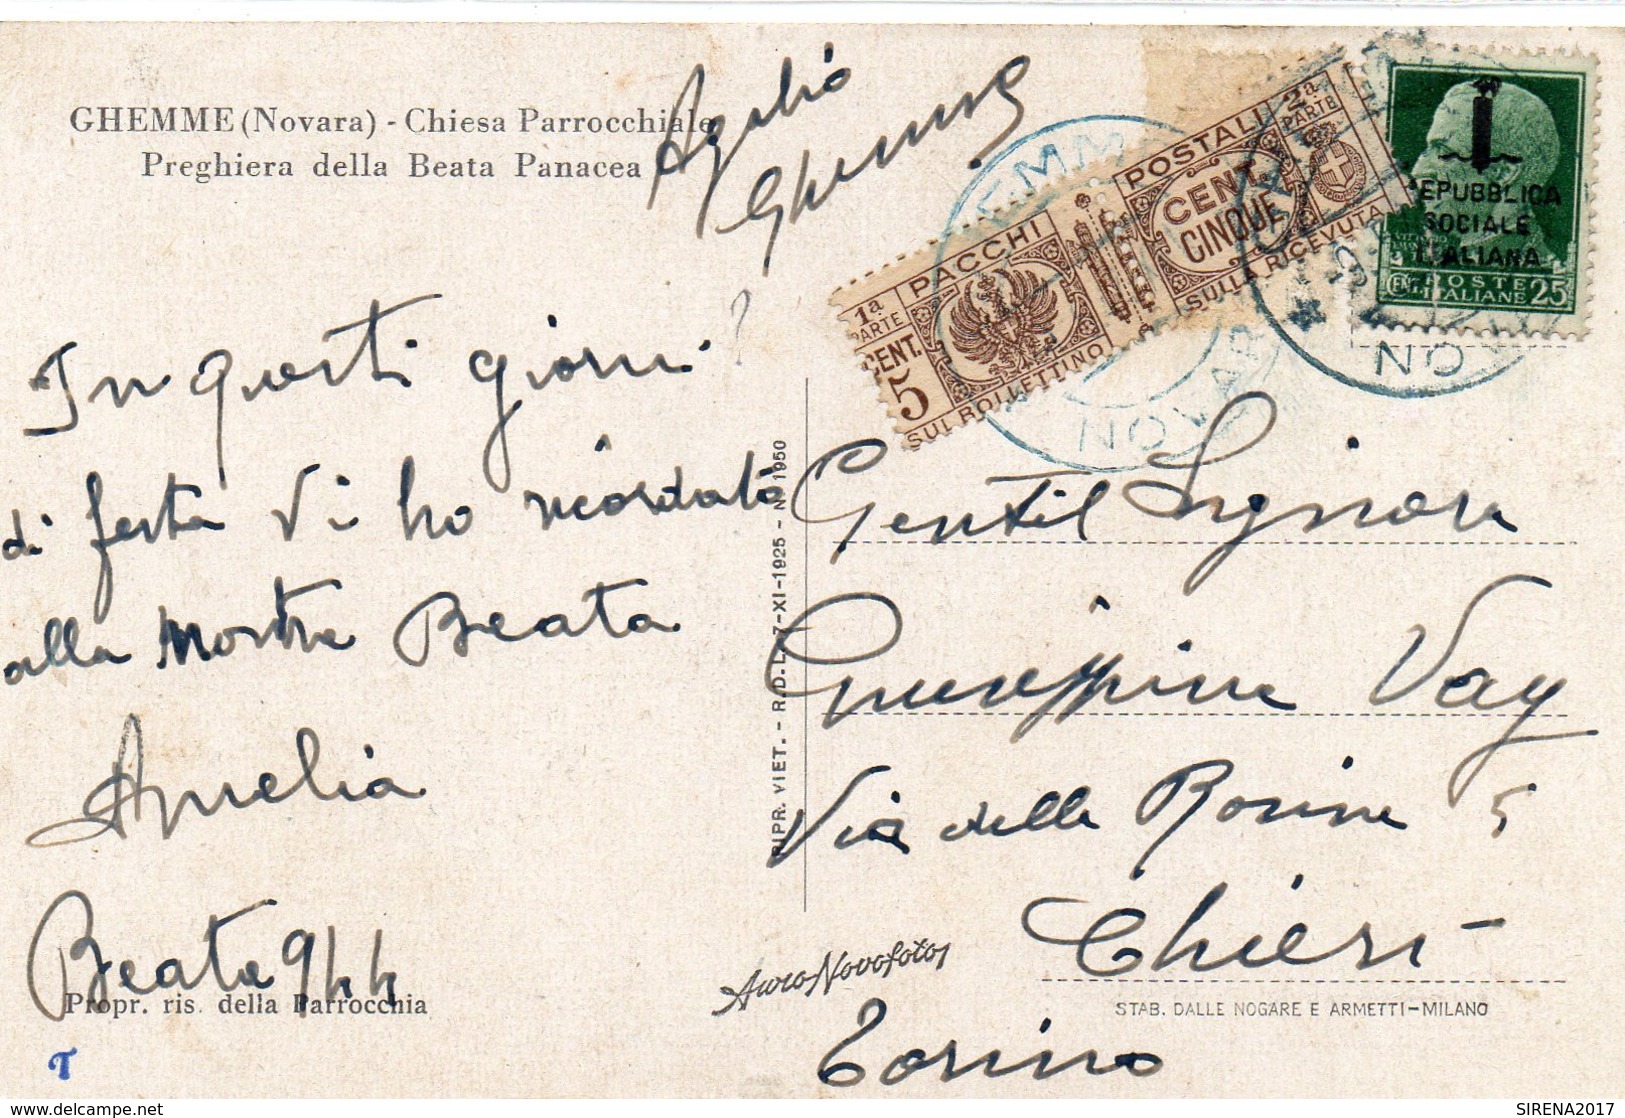 GHEMME (Novara) - Chiesa Parrocchiale
Preghiera della Beata Panacea
Ghemme
In questi giorni
di festa Vi ho ricordata
alla nostra Beata
Amelia
Beata 944
Propr. ris. della Parrocchia
T
RIPR. VIET. - R. D. L. 7-XI-1925 - N. 1950
1ª PARTE
PACCHI
CENT. 5
SUL BOLLETTINO
POSTALI
2ª PARTE
CENT.
CINQUE
SULLA RICEVUTA
REPUBBLICA
SOCIALE
ITALIANA
CENT. POSTE ITALIANE 25
NOVAR
NO
Gentil Signora
Giuseppina Vay
Via delle Rosine 5
Chieri
Torino
AutoNovofoto
STAB. DALLE NOGARE E ARMETTI-MILANO
www.delcampe.net
SIRENA2017